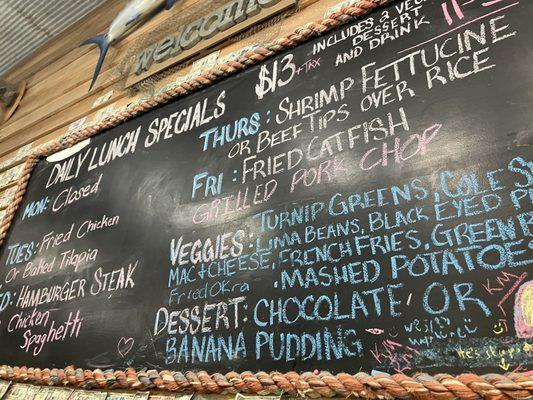 welcome
DAILY LUNCH SPECIALS
$13 +TAX
INCLUDES A 2 VEG
DESSERT,
AND DRINK
MON: Closed
TUES: Fried Chicken
Or Baked Tilapia
HAMBURGER STEAK
Chicken
Spaghetti
THURS: SHRIMP FETTUCINE
OR BEEF TIPS OVER RICE
FRI: FRIED CATFISH
GRILLED PORK CHOP
VEGGIES: TURNIP GREENS, COLE
MAC + CHEESE, LIMA BEANS, BLACK EYED
Fried OKra FRENCH FRIES, GREEN
MASHED POTATOES
DESSERT: CHOCOLATE OR
BANANA PUDDING
KM